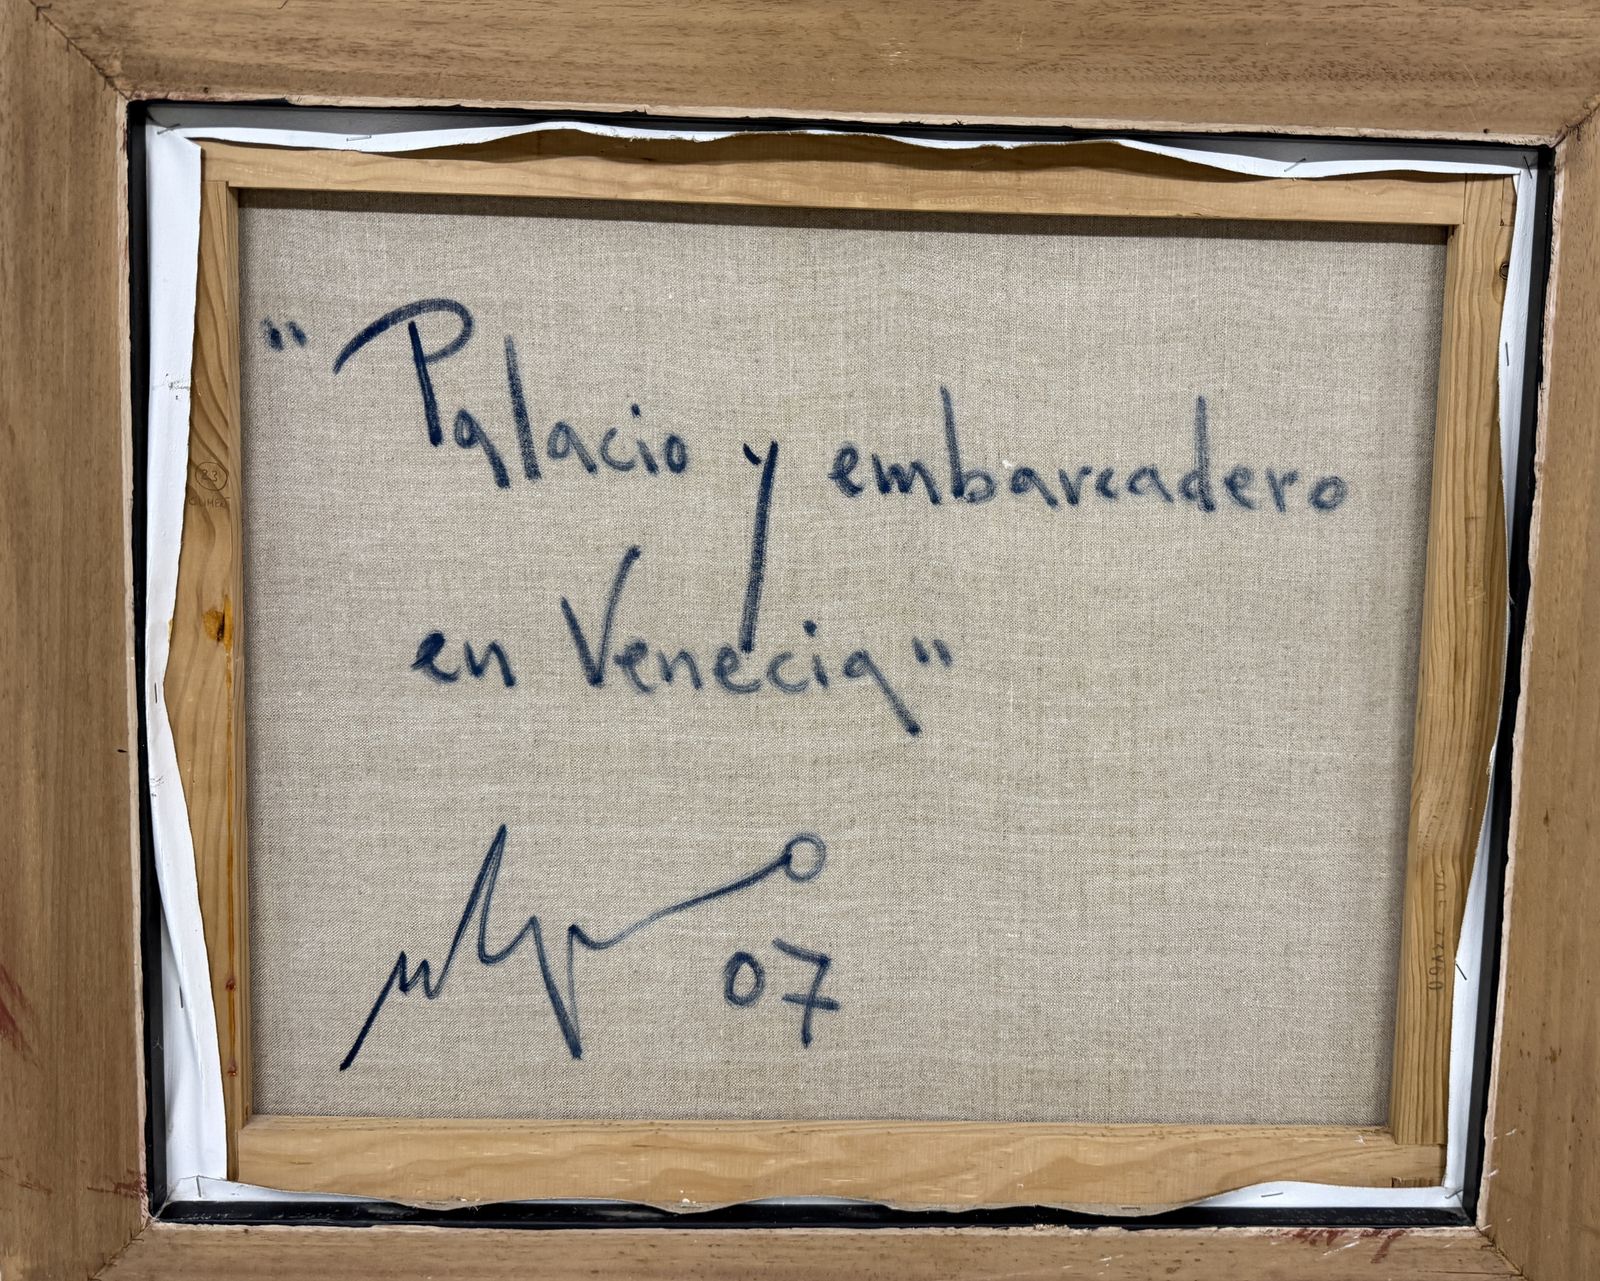 "Palacio y embarcadero
en Venecia"
07